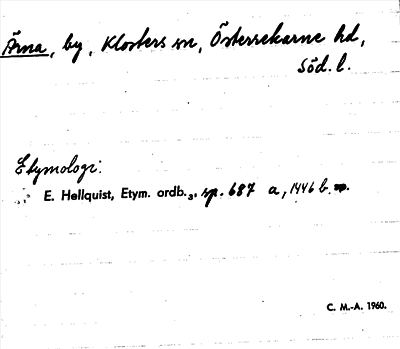 Ärna, by, Klosters sn, Österrekarne hd,
Söd. l.
Etymologi:
E. Hellquist, Etym. ordb.3, sp. 687 a, 1446 b.
C. M.-A. 1960.